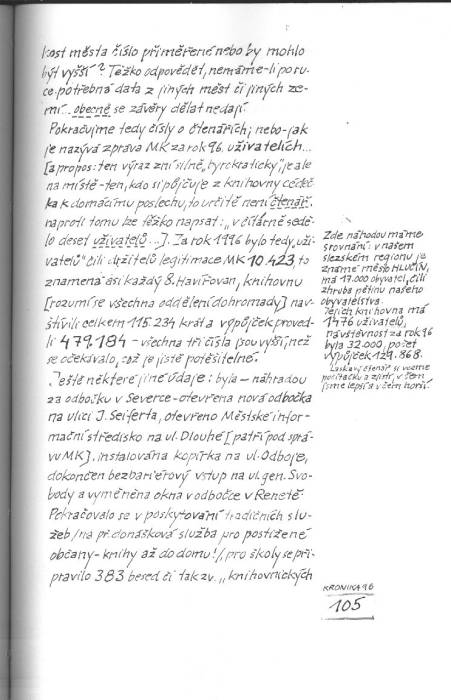 kost města číslo přiměřené nebo by mohlo
být vyšší? Těžko odpovědět, nemáme-li po ru-
ce potřebná data z jiných měst či jiných ze-
mí... obecně se závěry dělat nedají.
Pokračujme tedy čísly o čtenářích; nebo-jak
je nazývá zpráva MK za rok 96. uživatelích...
[a propos: ten výraz zní silně „byrokraticky", je ale
na místě - ten, kdo si půjčuje z knihovny cédéč-
ka k domácímu poslechu, to určitě není čtenář,
naproti tomu lze těžko napsat: „v čítárně sedě-
lo deset uživatelů...]. Za rok 1996 bylo tedy „uži-
vatelů" čili držitelů legitimace MK 10.423, to
znamená asi každý 8. Havířovan, knihovnu
[rozumí se všechna oddělení dohromady] nav-
štívili celkem 115.234 krát a výpůjček proved-
li 479.184 - všechna tři čísla jsou vyšší, než
se očekávalo, což je jistě potěšitelné.
Ještě některé jiné údaje: byla - náhradou
za odbočku v Severce - otevřena nová odbočka
na ulici J. Seiferta, otevřeno Městské infor-
mační středisko na ul. Dlouhé [patří pod sprá-
vu MK], instalována kopírka na ul. Odboje,
dokončen bezbariérový vstup na ul. gen. Svo-
body a vyměněna okna v odbočce v Renetě.
Pokračovalo se v poskytování tradičních slu-
žeb /na př. donášková služba pro postižené
občany - knihy až do domu!/, pro školy se při-
pravilo 383 besed či tak zv. „knihovnických
Zde náhodou máme
srovnání: v našem
slezském regionu je
známé město HLUČÍN,
má 17.000 obyvatel, čili
zhruba pětinu našeho
obyvatelstva.
Jejich knihovna má
1476 uživatelů,
návštěvnost za rok 96
byla 32.000, počet
výpůjček 129.868.
Laskavý čtenář si vezme
počítačku a zjistí, v čem
jsme lepší a v čem horší.
KRONIKA 96
105